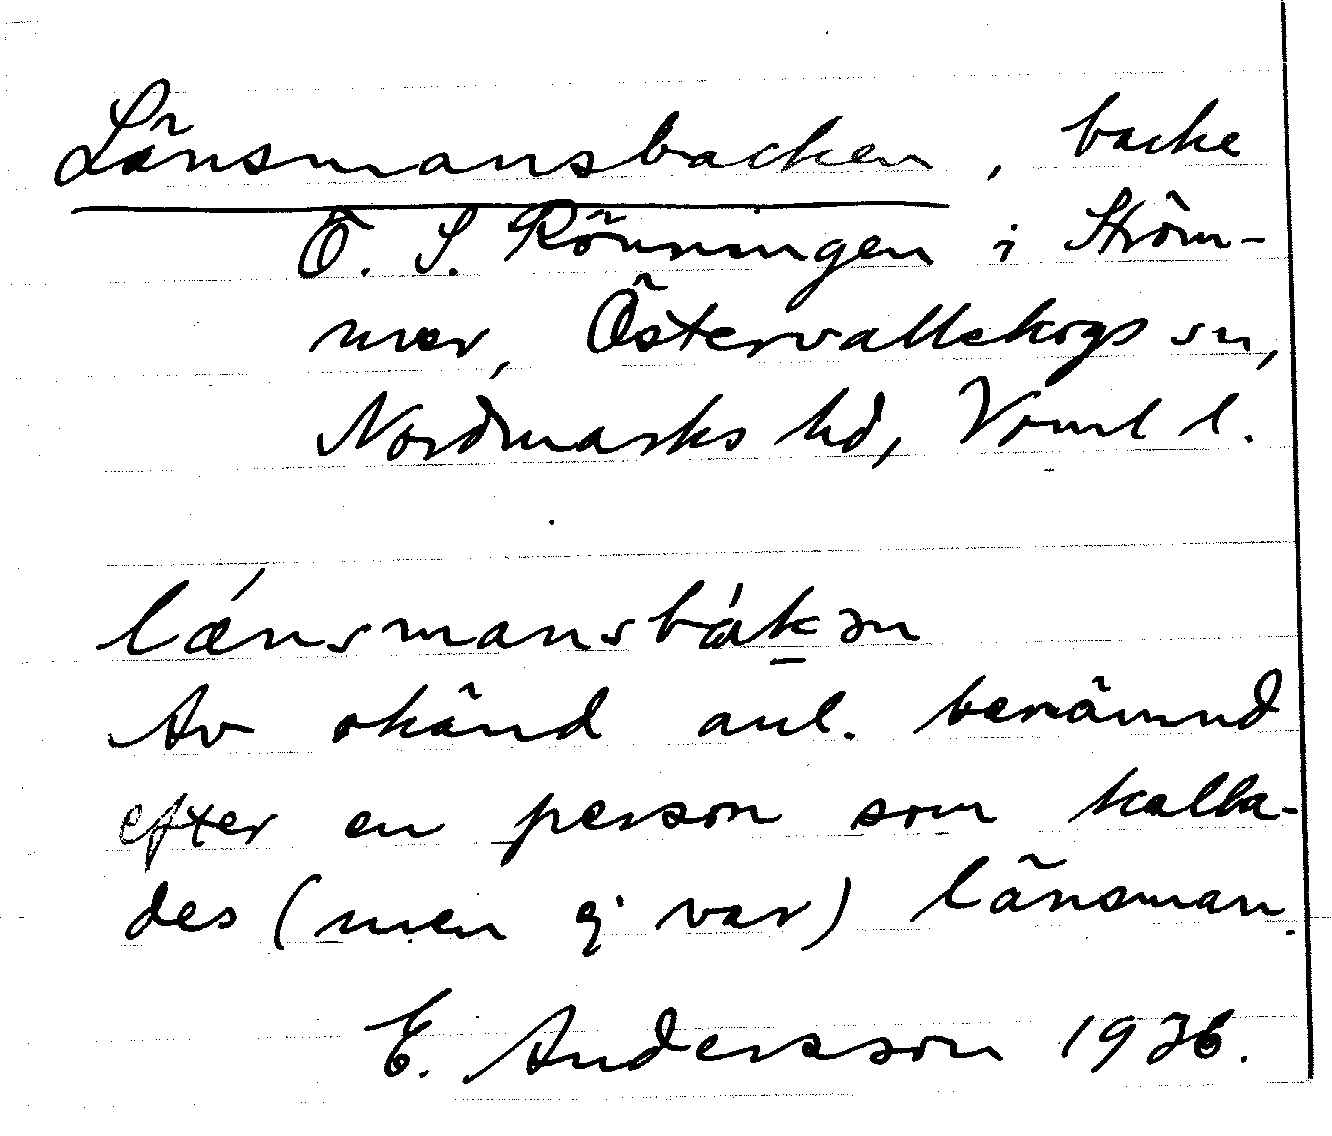 Länsmansbacken, backe
Ö. S. Rönningen i Ström-
mer, Östervallskogs sn,
Nordmarks hd, Vrml l.
lǽnsmansbák̲ən
Av okänd anl. benämnd
efter en person som kalla-
des (men ej var) länsman.
E. Andersson 1936.